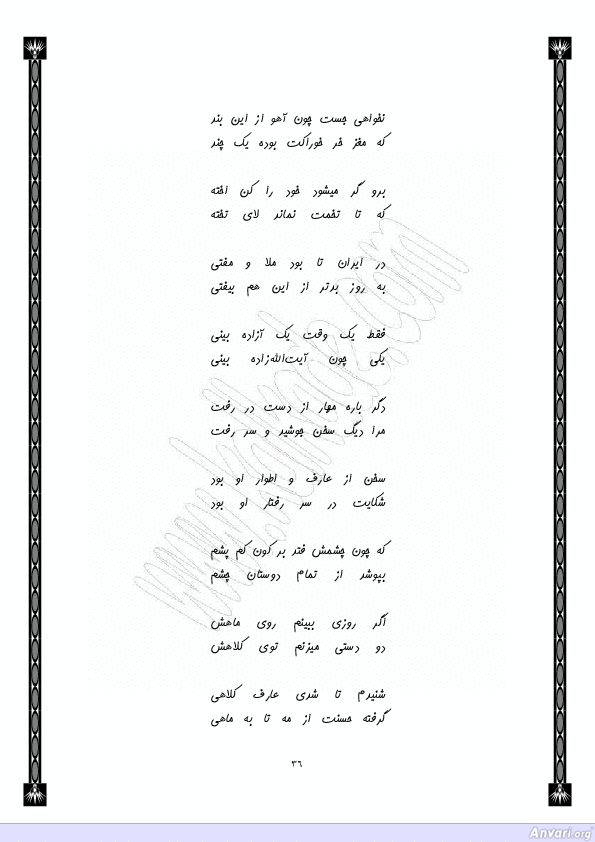 نخواهی جست چون آهو از این بند
که مغز خر خوراکت بوده یک چند
برو گر میشود خود را کن اخته
که تا تخمت نماند لای تخته
در ایران تا بود ملا و مفتی
به روز بدتر از این هم بیفتی
فقط یک وقت یک آزاده بینی
یکی چون آیت‌الله‌زاده بینی
دگر باره مهار از دست در رفت
مرا دیگ سخن جوشید و سر رفت
سخن از عارف و اطوار او بود
شکایت در سر رفتار او بود
که چون چشمش فتد بر کون کم پشم
بپوشد از تمام دوستان چشم
اگر روزی ببینم روی ماهش
دو دستی میزنم توی کلاهش
شنیدم تا شدی عارف کلاهی
گرفته حسنت از مه تا به ماهی
۳۶
www.kafinde.com
Anvari.org